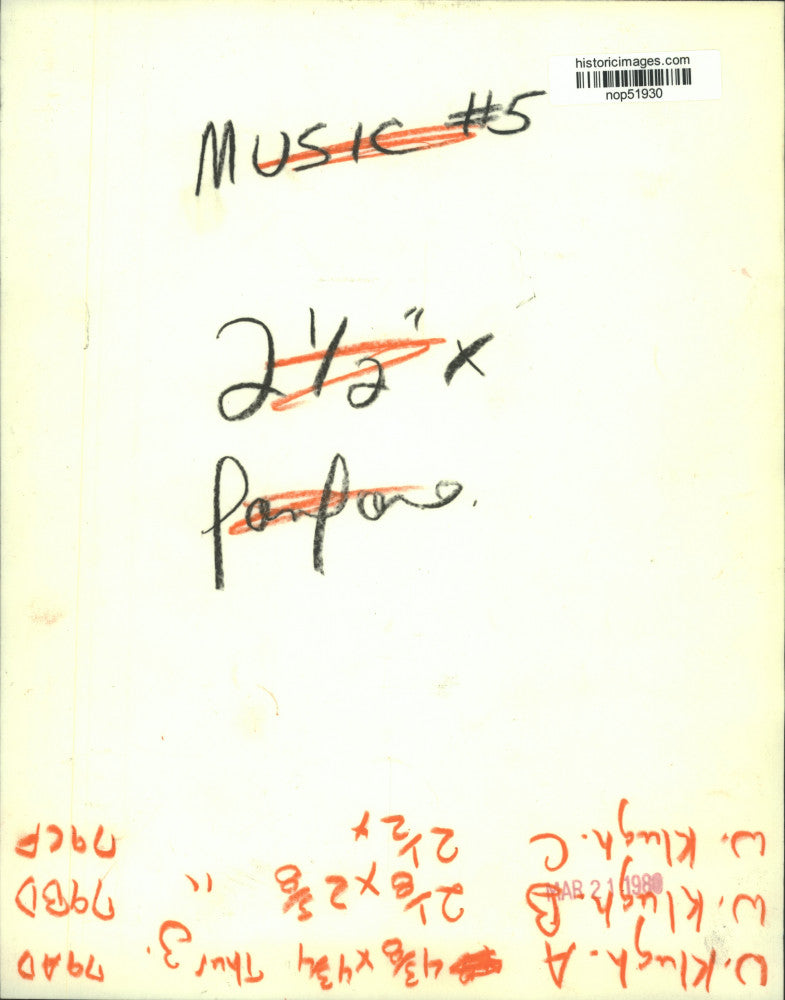 historicimages.com
nop51930
MUSIC #5
2 1/2" x
MAR 21 1980
W. Klugh. A 4 3/8 x 4 3/4 Thur 3. 79AD
W. Klugh. B 2 1/8 x 2 3/8 " 79BD
W. Klugh. C 2 1/2 x 79CP